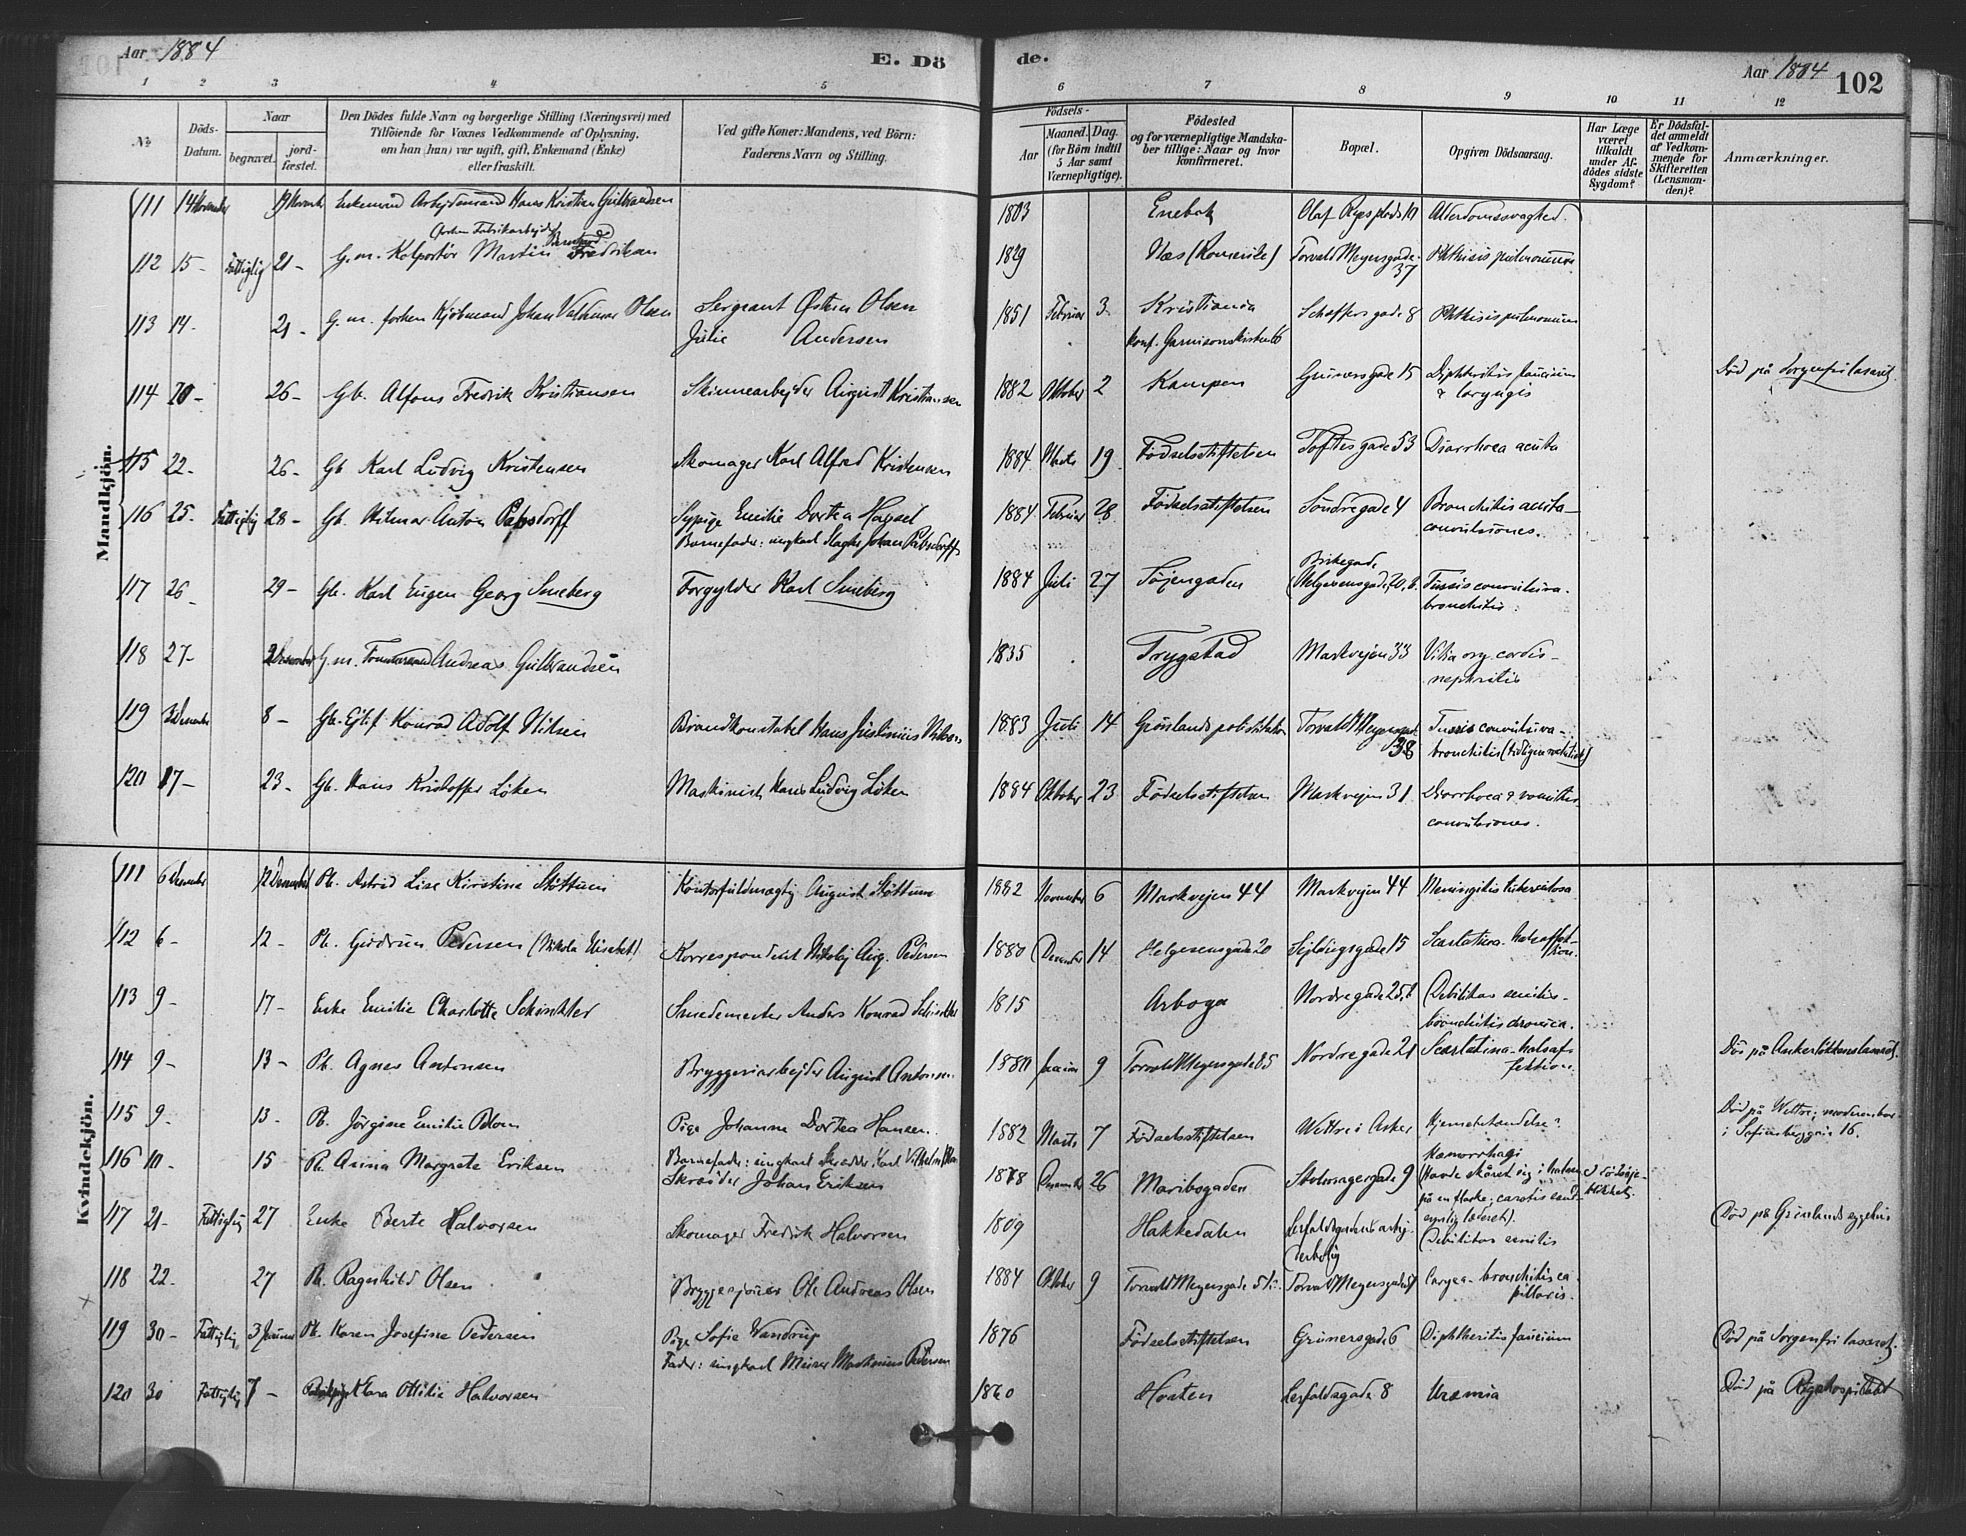 Aar 1884
E. Dö
de.
Aar 1884
102
1 2 3 4 5 6 7 8 9 10 11 12
№
Döds-Datum.
Naar
begravet.
jordfæstet.
Den Dödes fulde Navn og borgerlige Stilling (Næringsvei) med
Tilföiende for Voxnes Vedkommende af Oplysning,
om han (hun) var ugift, gift, Enkemand (Enke)
eller fraskilt.
Ved gifte Koner: Mandens, ved Börn:
Faderens Navn og Stilling.
Födsels-
Aar
Maaned. Dag.
(for Börn indtil
5 Aar samt
Værnepligtige).
Födested
og for værnepligtige Mandska-
ber tillige: Naar og hvor
konfirmeret.
Bopæl.
Opgiven Dödsaarsag.
Har Læge
været
tilkaldt
under Af-
dödes sidste
Sygdom?
Er Dödsfal-
det anmeldt
af Vedkom-
mende for
Skifteretten
(Lensman-
den)?
Anmærkninger.
Mandkjön.
111 14 November 19 November Enkemand Arbejdsmand Hans Kristian Gulbrandsen 1803 Enebak Olaf Ryesplads 10 Alderdomssvaghed.
forhen Fabrikarbejder Bernhard
112 15 - Fattiglig 21 - G.m. Kolportør Martin Fredriksen 1829 Næs (Romerike) Torvald Meyersgade 37 Phthisis pulmonum
113 14. 21 - G.m. forhen Kjøbmand Johan Valdemar Olsen Sergeant Østen Olsen 1851 Februar 3 Kristiania Schoffersgade 8 Phthisis pulmonum
Julie Andersen konf. Garnisonskirken
114 20 - 26 - Gb. Alfons Fredrik Kristiansen Skinnearbejder August Kristiansen 1882 Oktober 2 Kampen Grünersgade 15 Diphtheritis faucium
& laryngis Död på Sorgenfri lasaret.
115 22 - 26 - Gb. Karl Ludvig Kristensen Skomager Karl Alfred Kristensen 1884 Marts 19 Fødselsstiftelsen Toftesgade 53 Diarrhoea acuta
116 25. Fattiglig 28 - Gb. Hilmar Anton Pabsdorff Sypige Emilie Dortea 1884 Februar 28 Fødselsstiftelsen Søndregade 4 Bronchitis acuta -
Barnefader: ungkarl Slagter Johan Pabsdorff convulsiones.
117 26 - 29 - Gb. Karl Eugen Georg Smeberg Forgylder Karl Smeberg 1884 Juli 27 Tøjengaden Birkegade
Helgesensgade 20, b. Tussis convulsiva.
bronchitis.
118 27 - 2 December G.m. Tømmermand Andreas Gulbrandsen 1835 Trygstad Markvejen 33 Vitia org. cordis -
nephritis
119 3 December 8 - Gb. Ejlif Konrad Adolf Nilsen Brandkonstabel Hans Justinius Nilsen 1883 Juli 14 Grønlands politistation Torvald Meyersgade 38 Tussis convulsiva -
bronchitis
120 17 - 23 - Gb. Hans Kristoffer Løken Maskinist Hans Ludvig Løken 1884 Oktober 23 Fødselsstiftelsen Markvejen 31 Diarrhoea & vomitus
convulsiones.
Kvindekjön.
111 6 December 12 December Pb. Astrid Lise Kirstine Støttum Kontorfuldmægtig August Støttum 1882 November 6 Markvejen 44 Markvejen 44 Meningitis tuberculosa
112 6 - 12 - Pb. Gudrun Pedersen (Nikola Elisabet) Korrespondent Nikolaj Aug. Pedersen 1880 December 14 Helgesensgade 20 Sejldugsgade 15 Scarlatina - halsaffektion.
113 9 - 17 - Enke Emilie Charlotte Schinkler Smedemester Anders Konrad Schinkler 1815 Arboga Nordregade 25, b Debilitas senilis -
bronchitis chronica.
114 9 - 13 - Pb. Agnes Antonsen Bryggeriarbejder August Antonsen 1880 Januar 9 Torvald Meyersgade 85 Nordregade 21 Scarlatina - halsaf-
fektion. Död på Ankerløkkens lasaret.
115 9 - 13 - Pb. Jørgine Emilie Pige Johanne Dortea Hansen. 1882 Marts 7 Fødselsstiftelsen Wettre i Asker Hjernebetændelse? Död på Wettre; moderen bor
i Sofienberggaten 16.
Barnefader: ungkarl Skrædder Karl Vilhelm
116 10 - 15 - Pb. Anna Margrete Eriksen Skræder Johan Eriksen 1878 December 26 Maribogaden Stolmagergade 9 Hæmorrhagi
(Havde skåret sig i halsen
på en flaske; carotis
læderet).
117 21 - Fattiglig 27 Enke Berte Halvorsen Skomager Fredrik Halvorsen 1809 Hakkedalen Debilitas senilis Död på Grønlands sygehus
118 22 - 27 Pb. Ragnhild Olsen Bryggesjouer Ole Andreas Olsen 1884 Oktober 9 Torvald Meyersgade Torvald Meyersgade Coryza - bronchitis ca-
pillaris.
119 30 - Fattiglig 3 Januar Pb. Karen Josefine Pedersen Pige Sofie Wandrup 1876 Fødselsstiftelsen Grünersgade 6 Diphtheritis faucium Död på Sorgenfri lasaret.
Fader: ungkarl Murer Martinius Pedersen
120 30 Fattiglig 7 - Klara Ottilie Halvorsen 1860 Horten Lerfaldsgade 8 Uræmia Död på Rigshospitalet